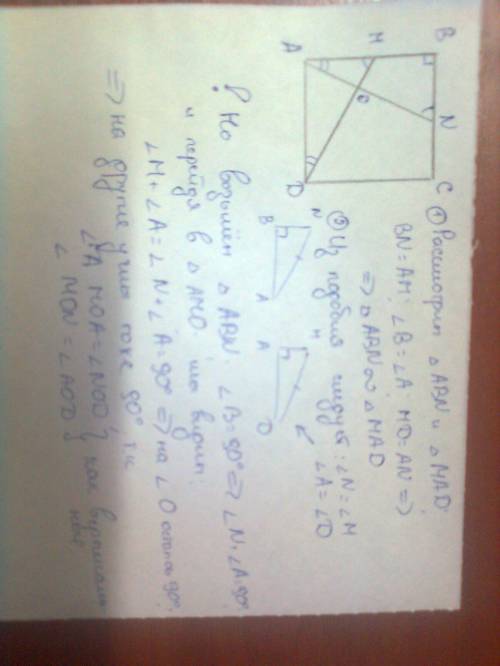 B
M
A
N
O
C
D
① Рассмотрим △ ABN и △ MAD:
BN = AM; ∠B = ∠A; MD = AN =>
=> △ ABN ∾ △ MAD
② Из подобия следует: ∠N = ∠M
∠A = ∠D
N
B
A
M
A
D
Но возьмём △ ABN: ∠B = 90° => ∠N + ∠A = 90°
и перейдя в △ AMD: мы видим:
∠M + ∠A = ∠N + ∠A = 90° => на ∠O остаток 90°
=> на другие углы тоже 90°, т.к
∠ MOA = ∠NOD } как вертикальные
∠ MON = ∠AOD }